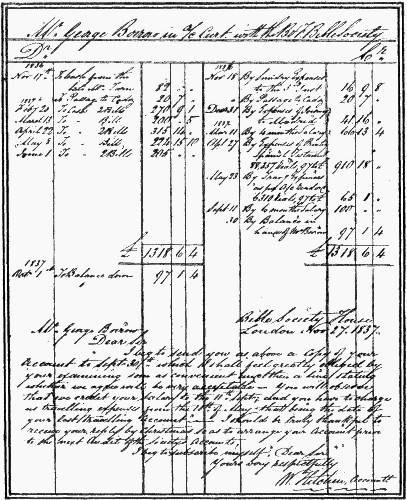 Mr. George Borrow in A/c Curt. with the B & F Bible Society
Dr. Cr.
1836
Nov 17th To Cash from the
late Mr. Tarn 82 " "
" To Passage to Cadiz 20 7 "
To Cash 2 Bills 270 9 1
March 13 To Bill 200 " 5
April 22 To 2 Bills 315 14 "
May 5 To Bill 224 15 10
June 1 To 2 Bills
£ 1318 6 4
1837
To Balance down 97 1 4
1836
Nov 18 By Sundry Expenses
to the Inst. 16 9 8
" By Passage to Cadiz 20 7 "
Dec 31 By Expenses of Do.
to Madrid 41 16 "
1837
Mar 11 By 4 months Salary 66 13 4
Apl 27 By Expenses of Printg
Spanish Testament
910 18 "
May 23 By Travg Expenses
as per A/c
65 1 "
Sept 11 By 6 months Salary 100 " "
30 By Balance in
hands of Mr Borrow 97 1 4
£ 1318 6 4
Bible Society House
London Nov 27. 1837.
Mr. George Borrow
Dear Sir
I beg to send you as above a Copy of your
Account to Sept. 30, which I shall feel greatly obliged by
your examining soon as convenient, & a line stating
whether we agree will be very acceptable — You will observe
that we credit your Salary to the 11th Septr., and you have to charge
us travelling expenses from the 18th of May, that being the date of
your last travelling Account — I should be truly thankful to
receive your reply by Christmas so as to arrange your Account prior
to the next Audit of the Society's Accounts.
I beg to subscribe myself, Dear Sir
Yours very respectfully
W. Hitchin, Accountt